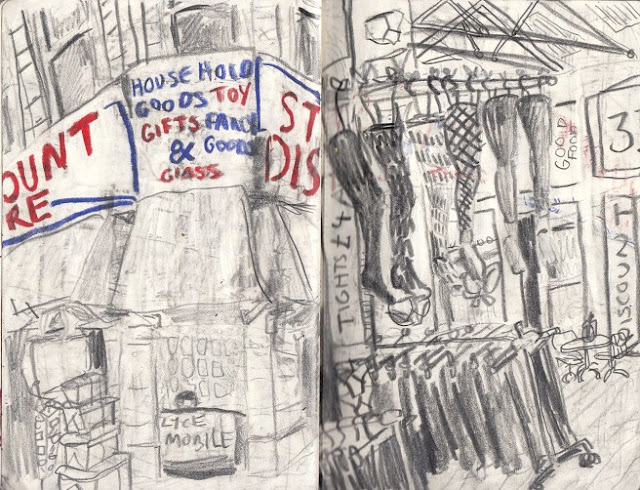 HOUSE HOLD
GOODS TOY
GIFTS FANCY
& GOODS
GLASS
OUNT
RE
ST
DIS
LYCE
MOBILE
TIGHTS £4
GOOD
FOOD
3
DISCOUNT